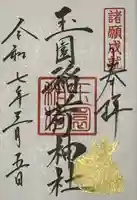 諸願成就
奉拝
玉園稲荷神社
令和七年三月五日